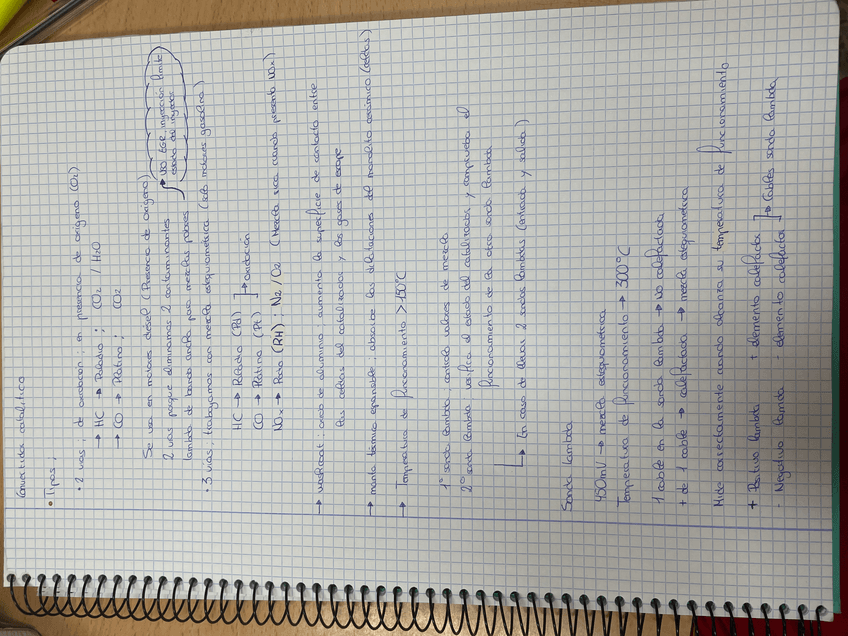 Convertidor catalítico
• Tipos:
• 2 vías: de oxidación: en presencia de oxígeno (O2)
→ HC → Paladio; CO2 / H2O
→ CO → Platino; CO2
Se usa en motores diésel (Presencia de oxígeno)
2 vías porque eliminamos 2 contaminantes
→ NO EGR, inyección límite
estado del inyector
lambda de banda ancha para mezclas pobres
• 3 vías: trabajamos con mezcla estequiométrica (solo motores gasolina)
HC → Paladio (Pd)
CO → Platino (Pt) ] → oxidación
NOx → Rodio (RH): N2 / O2 (Mezcla rica cuando presenta NOx)
→ washcoat: óxido de aluminio: aumento de superficie de contacto entre
las celdas del catalizador y los gases de escape
→ manta térmica expansible: absorbe las dilataciones del monolito cerámico (celdas)
→ Temperatura de funcionamiento >
1º sonda lambda: control valores de mezcla
2º sonda lambda: verifica el estado del catalizador, y comprueba el
funcionamiento de la otra sonda lambda
→ En caso de llevar 2 sondas lambdas (entrada y salida)
Sonda lambda
450mV → mezcla estequiométrica
Temperatura de funcionamiento → 300°C
1 cable en la sonda lambda → no calefactada
+ de 1 cable → calefactada → mezcla estequiométrica
Mide correctamente cuando alcanza su temperatura de funcionamiento
+ Positivo lambda + elemento calefactor
- Negativo lambda - elemento calefactor ] → Cables sonda lambda